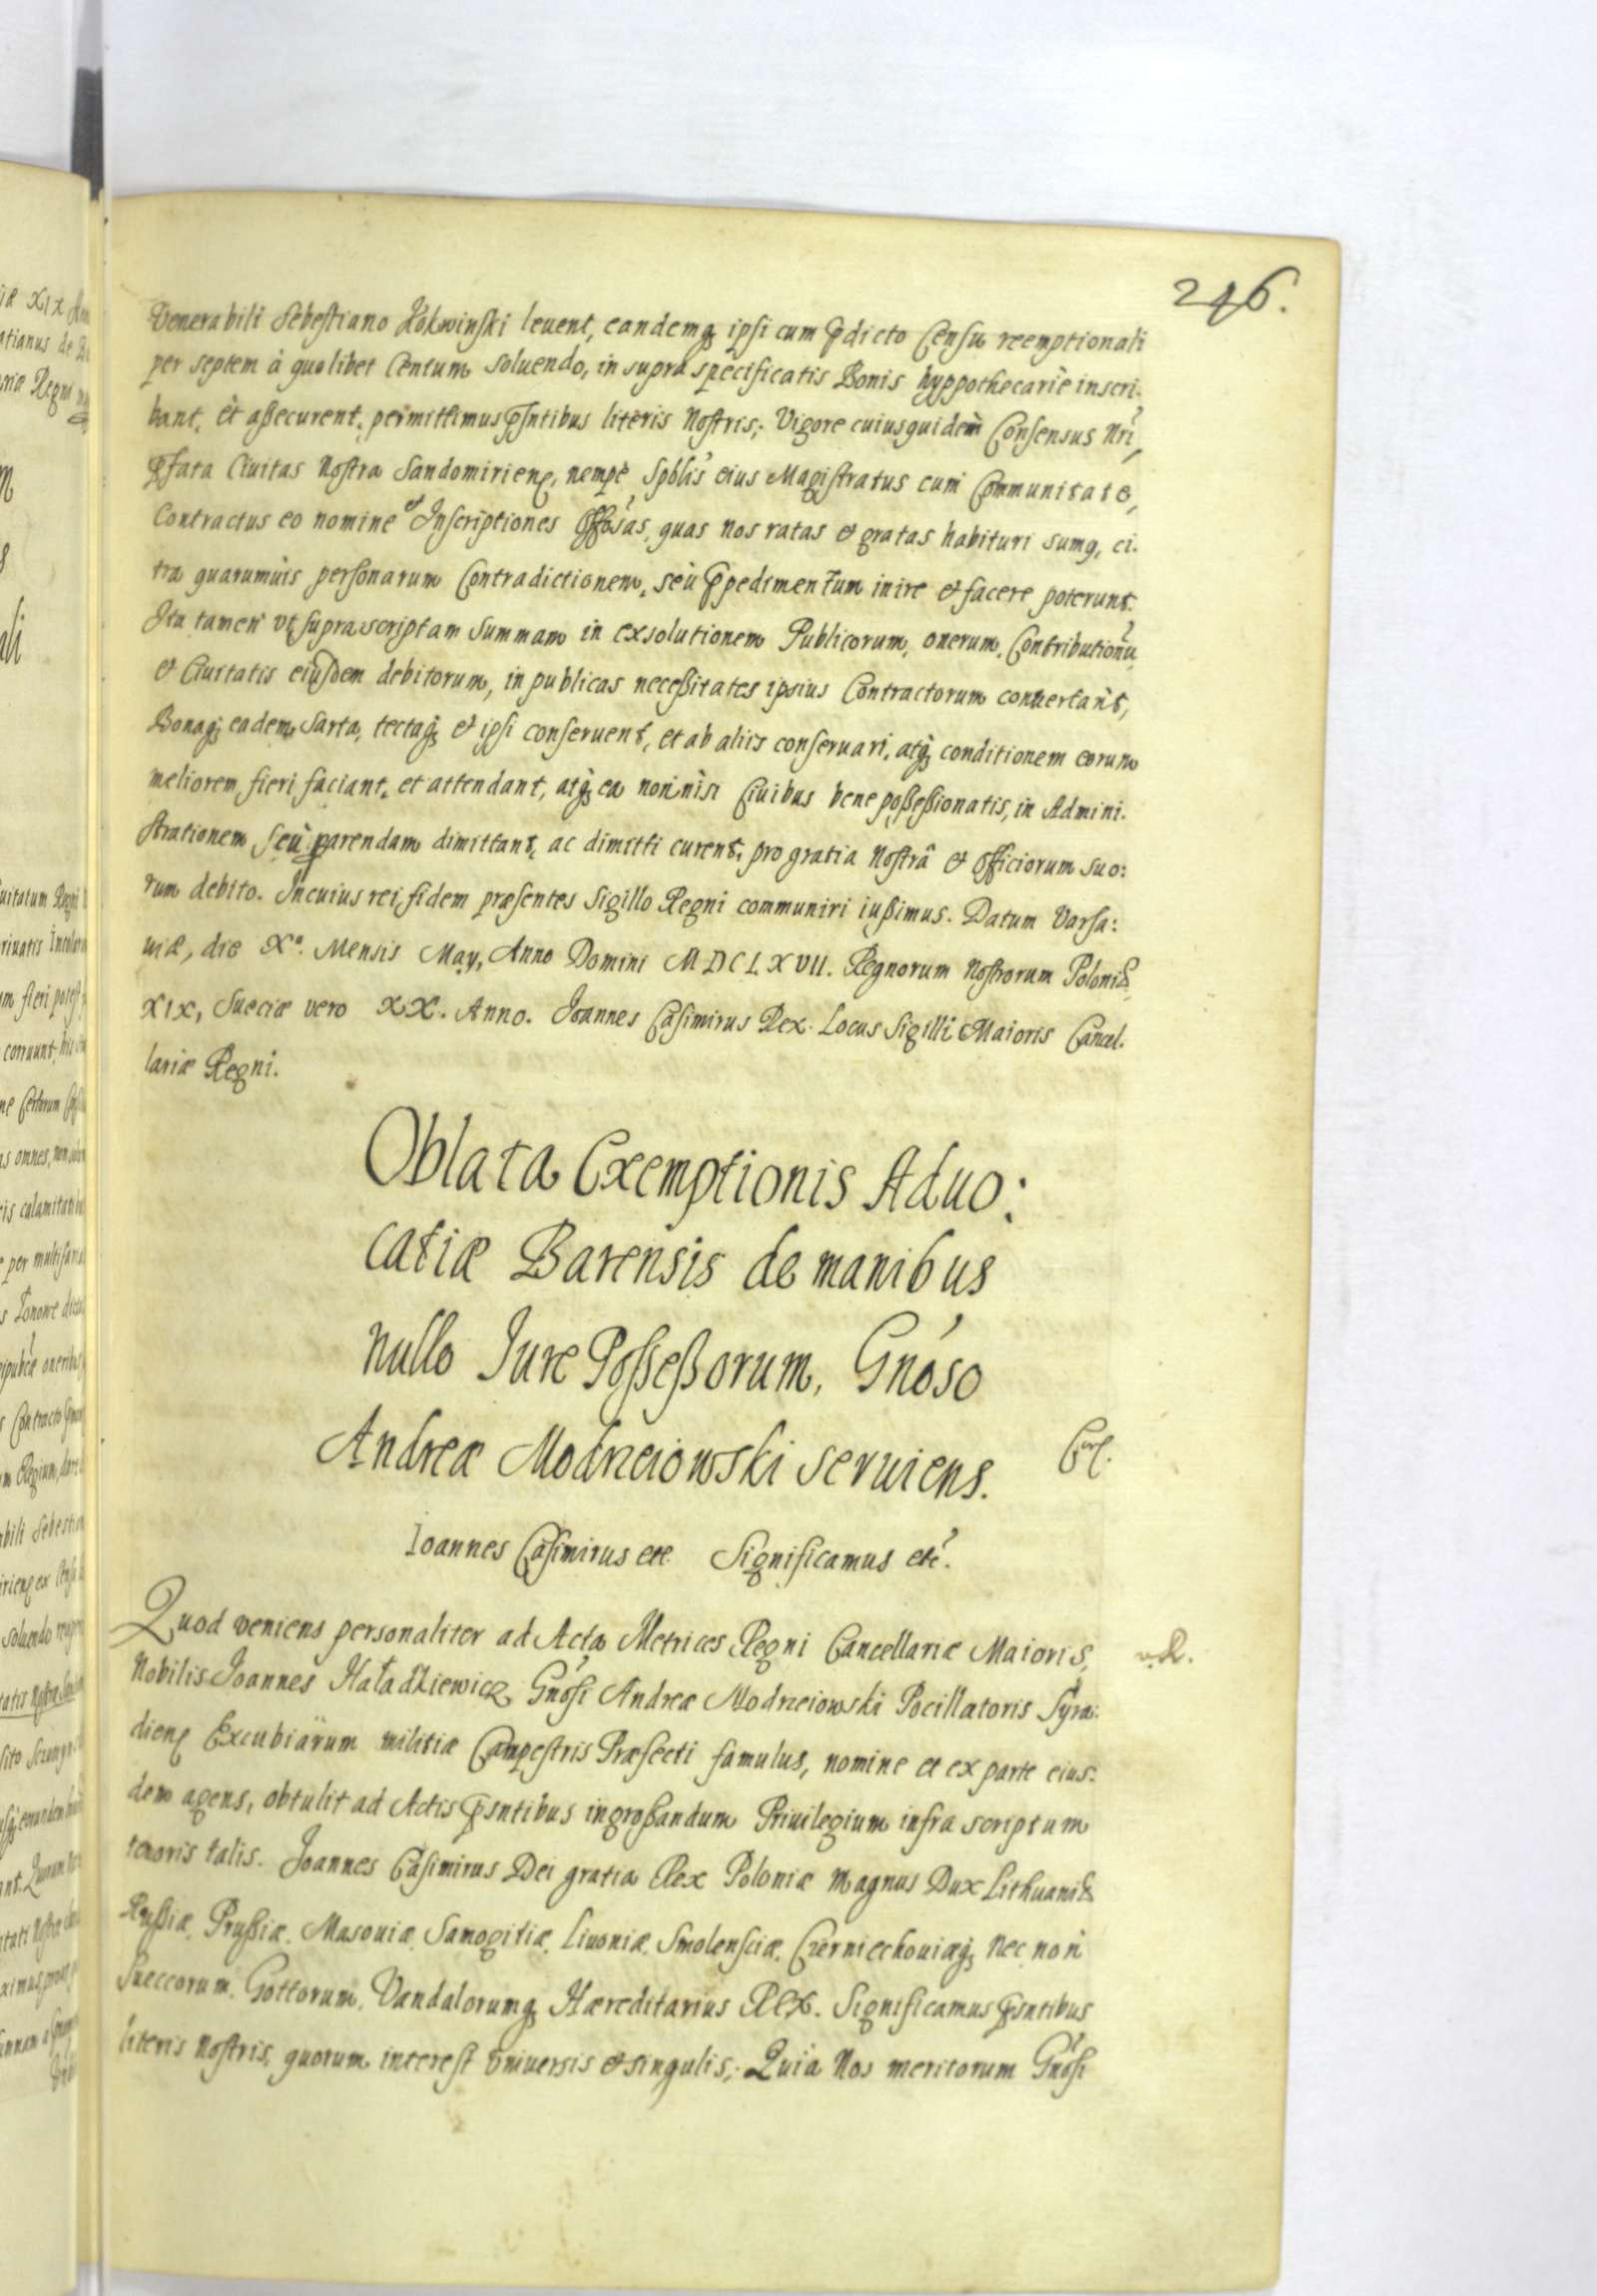 246.
Venerabili Sebestiano Kokwinski leuent, eandemq; ipsi cum p̃dicto Censu reemptionali
per septem à quolibet Centum soluendo, in supra specificatis Bonis hyppothecarie inscri-
bant, et assecurent, permittimus p̃sntibus literis Nostris; Vigore cuiusquidem Consensus Nri,
p̃fata Ciuitas Nostra Sandomirien̄, nempè Spblis eius Magistratus cum Communitate,
Contractus eo nomine et Inscriptiones Offosas, quas nos ratas et gratas habituri sumq, ci-
tra quarumuis personarum Contradictionem, seù p̃pedimentum inire et facere poterunt.
Ita tamen vt supra scriptam Summam in exsolutionem Publicorum, onerum, Contributionũ
et Ciuitatis eiusdem debitorum, in publicas necessitates ipsius Contractorum conuertant,
Bonaq; eadem, Sarta, tectaq; et ipsi conseruent, et ab aliis conseruari, atq; conditionem eorum
meliorem, fieri faciant, et attendant, atq; ea non nisi Ciuibus bene possessionatis, in Admini-
strationem seù parendam dimittant, ac dimitti curent, pro gratia Nostrâ et Officiorum suo:
rum debito. In cuius rei fidem præsentes Sigillo Regni communiri iussimus. Datum Varsa:
uiæ, die Xa. Mensis May, Anno Domini MDCLXVII. Regnorum Nostrorum Poloniæ
XIX, Sueciæ vero XX. Anno. Ioannes Casimirus Rex. Locus Sigilli Maioris Cancel-
lariæ Regni.
Oblata Exemptionis Aduo:
catiæ Barensis de manibus
nullo Iure Possessorum, Gnoso
Andreæ Modrzeiowski seruiens.
Ioannes Casimirus etc Significamus etc.
Quod veniens personaliter ad Acta Metrices Regni Cancellariæ Maioris,
Nobilis Ioannes Haładkiewicz, Gnosi Andreæ Modrzeiowski Pocillatoris Syra-
dien̄ Excubiarum militiæ Campestris Præfecti famulus, nomine et ex parte eius:
dem agens, obtulit ad Actis p̃sntibus ingrossandum Priuilegium infra scriptum
tenoris talis. Ioannes Casimirus Dei gratia Rex Poloniæ Magnus Dux Lithuaniæ
Russiæ, Prussiæ, Masouiæ, Samogitiæ, Liuoniæ, Smolensciæ, Czerniechouiæq; Nec non
Sueccorum, Gottorum, Vandalorumq; Hæreditarius REX. Significamus p̃sntibus
literis Nostris, quorum interest vniuersis et singulis; Quia Nos meritorum Gnosi